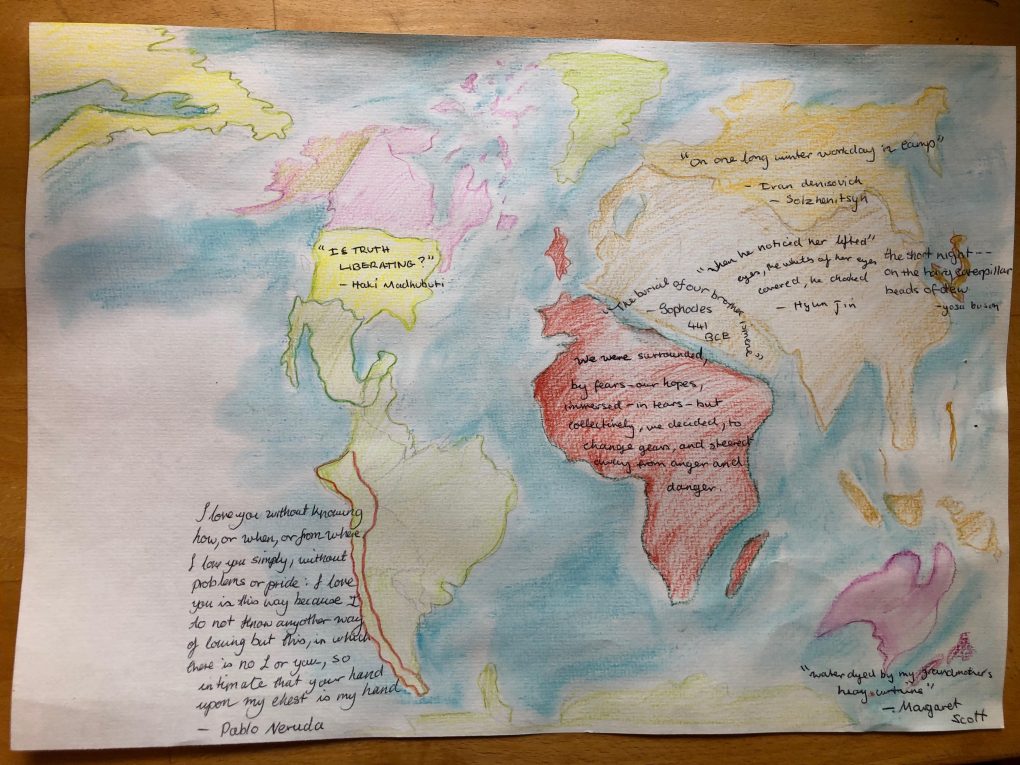 "On one long winter workday in camp"
- Ivan denisovich
- Solzhenitsyn
"IS TRUTH
LIBERATING?"
- Haki Madhubuti
"The burial of our brother, ismene"
- Sophocles
441
BCE
"when he noticid her lifted"
eyes, the whites of her eyes
covered, he choked
- Hyun Jin
the short night---
on the hairy caterpillar
beads of dew
-yosa buson
We were surrounded,
by fears-our hopes,
immersed-in tears-but
collectively, we decided, to
change gears, and steered
away from anger and
danger.
I love you without knowing
how, or when, or from where
I love you simply, without
problems or pride: I love
you is this way because I
do not know anyother way
of loving but this, in which
there is no I or you, so
intimate that your hand
upon my chest is my hand
- Pablo Neruda
"water dyed by my grandmother's
heavy curtains"
- Margaret
Scott